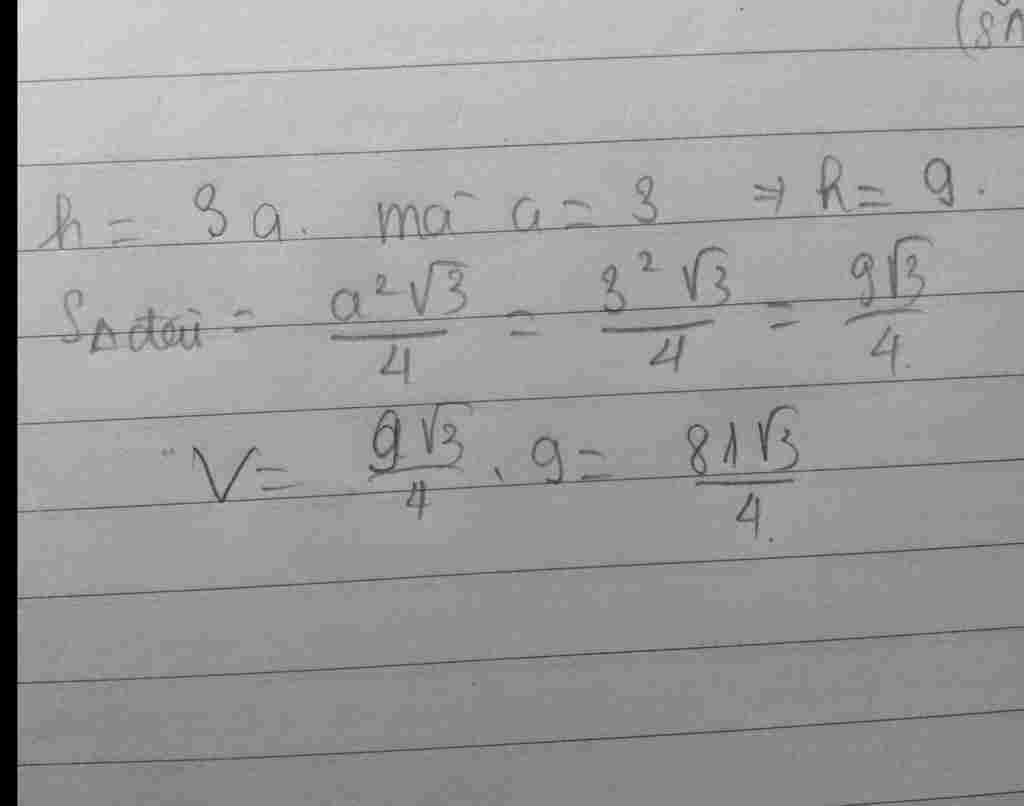 (SA
h = 3a. mà a = 3 ⇒ h = 9.
SΔđều = a²√3/4 = 3²√3/4 = 9√3/4.
V = 9√3/4 . 9 = 81√3/4.